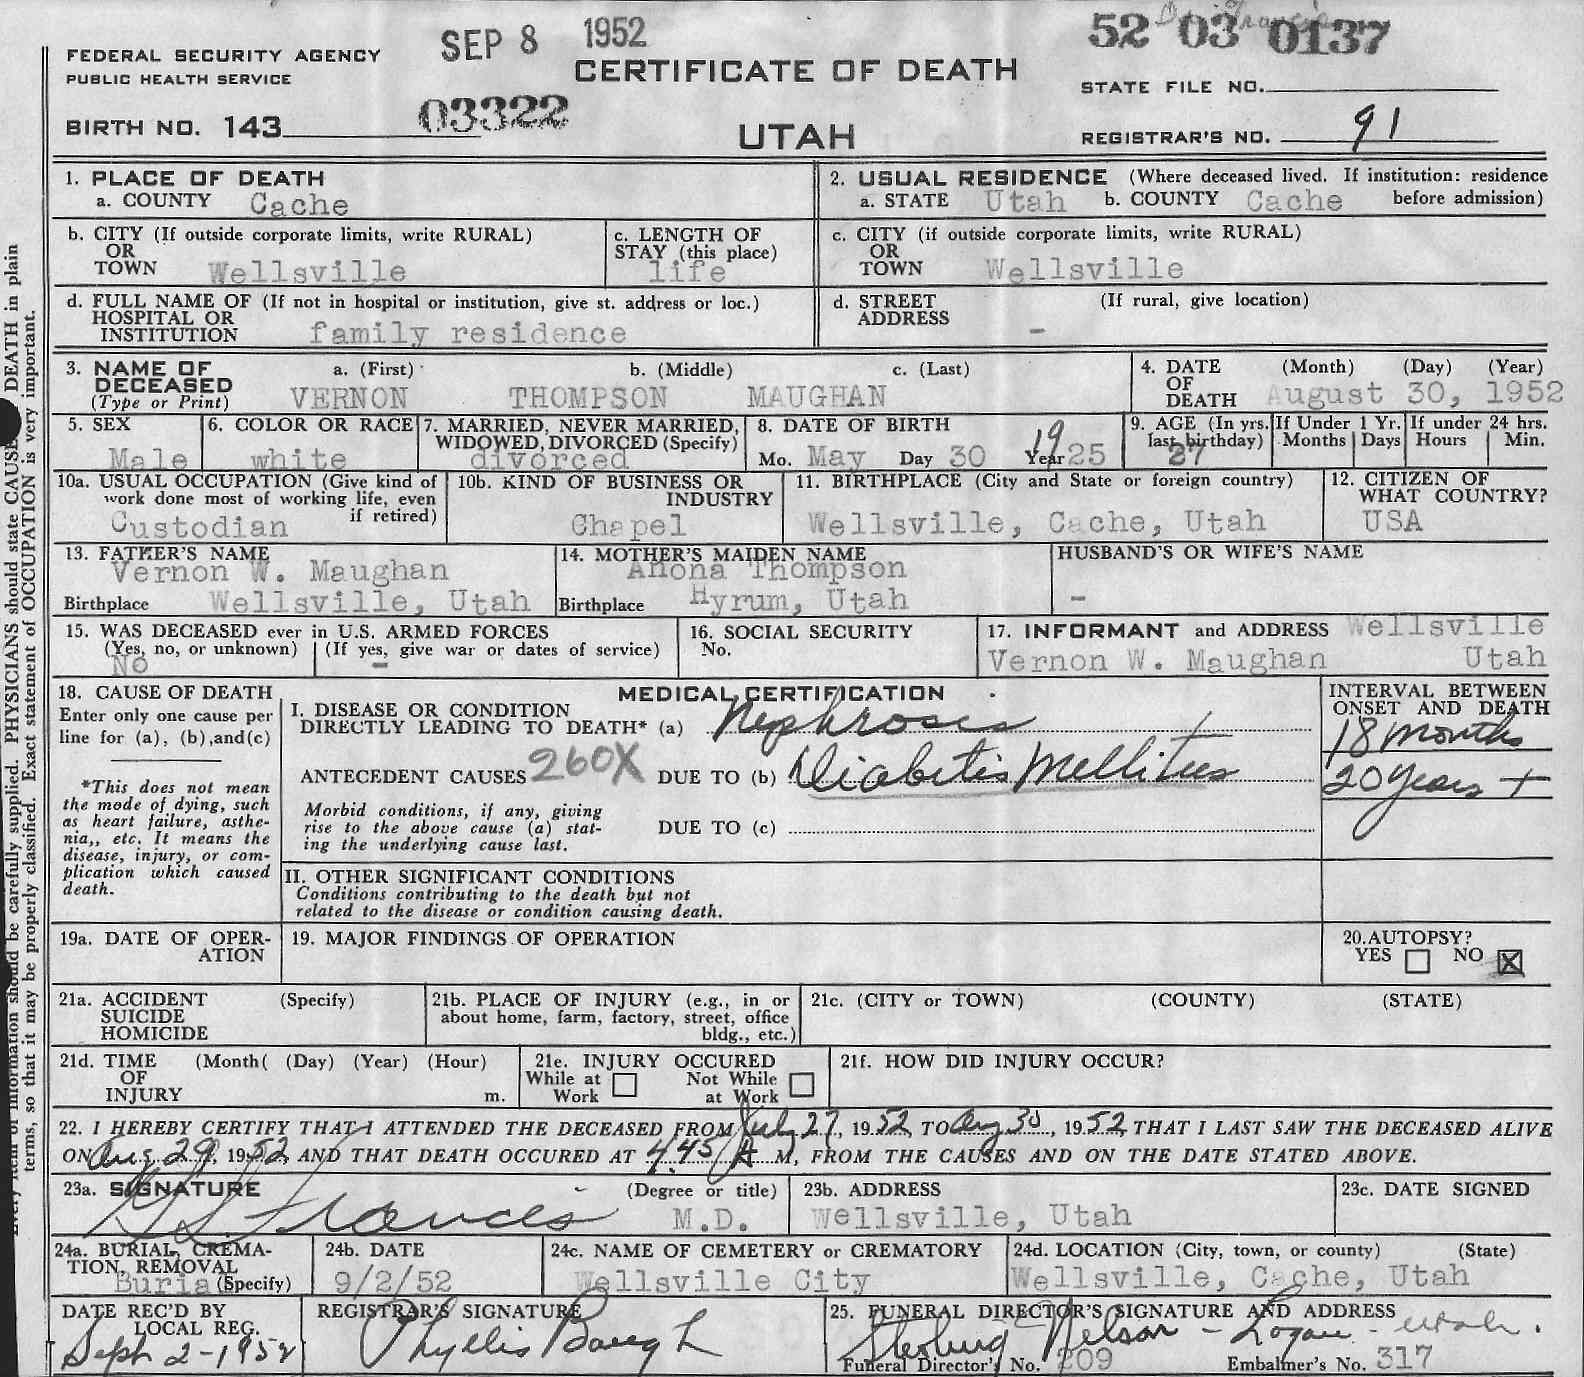 SEP 8 1952
52 03 0137
FEDERAL SECURITY AGENCY
PUBLIC HEALTH SERVICE
CERTIFICATE OF DEATH
STATE FILE NO.
03322
BIRTH NO. 143
UTAH
REGISTRAR'S NO. 91
1. PLACE OF DEATH
a. COUNTY Cache
2. USUAL RESIDENCE (Where deceased lived. If institution: residence
a. STATE Utah b. COUNTY Cache before admission)
b. CITY (If outside corporate limits, write RURAL)
OR
TOWN Wellsville
c. LENGTH OF
STAY (this place)
life
c. CITY (if outside corporate limits, write RURAL)
OR
TOWN Wellsville
d. FULL NAME OF (If not in hospital or institution, give st. address or loc.)
HOSPITAL OR
INSTITUTION family residence
d. STREET (If rural, give location)
ADDRESS -
3. NAME OF a. (First) b. (Middle) c. (Last)
DECEASED
(Type or Print) VERNON THOMPSON MAUGHAN
4. DATE (Month) (Day) (Year)
OF
DEATH August 30, 1952
5. SEX
Male
6. COLOR OR RACE
white
7. MARRIED, NEVER MARRIED,
WIDOWED, DIVORCED (Specify)
divorced
8. DATE OF BIRTH
Mo. May Day 30 Year 1925
9. AGE (In yrs.
last birthday)
27
If Under 1 Yr.
Months Days
If under 24 hrs.
Hours Min.
10a. USUAL OCCUPATION (Give kind of
work done most of working life, even
if retired)
Custodian
10b. KIND OF BUSINESS OR
INDUSTRY
Chapel
11. BIRTHPLACE (City and State or foreign country)
Wellsville, Cache, Utah
12. CITIZEN OF
WHAT COUNTRY?
USA
13. FATHER'S NAME
Vernon W. Maughan
Birthplace Wellsville, Utah
14. MOTHER'S MAIDEN NAME
Anona Thompson
Birthplace Hyrum, Utah
HUSBAND'S OR WIFE'S NAME
-
15. WAS DECEASED ever in U.S. ARMED FORCES
(Yes, no, or unknown) (If yes, give war or dates of service)
No -
16. SOCIAL SECURITY
No.
17. INFORMANT and ADDRESS Wellsville
Vernon W. Maughan Utah
18. CAUSE OF DEATH
Enter only one cause per
line for (a), (b),and(c)
*This does not mean
the mode of dying, such
as heart failure, asthe-
nia,, etc. It means the
disease, injury, or com-
plication which caused
death.
MEDICAL CERTIFICATION
I. DISEASE OR CONDITION
DIRECTLY LEADING TO DEATH* (a) Nephrosis
ANTECEDENT CAUSES 260X DUE TO (b) Diabetis Mellitus
Morbid conditions, if any, giving
rise to the above cause (a) stat-
ing the underlying cause last.
DUE TO (c)
INTERVAL BETWEEN
ONSET AND DEATH
18 months
20 years +
II. OTHER SIGNIFICANT CONDITIONS
Conditions contributing to the death but not
related to the disease or condition causing death.
19a. DATE OF OPER-
ATION
19. MAJOR FINDINGS OF OPERATION
20.AUTOPSY?
YES NO X
21a. ACCIDENT (Specify)
SUICIDE
HOMICIDE
21b. PLACE OF INJURY (e.g., in or
about home, farm, factory, street, office
bldg., etc.)
21c. (CITY or TOWN) (COUNTY) (STATE)
21d. TIME (Month( (Day) (Year) (Hour)
OF
INJURY m.
21e. INJURY OCCURED
While at Work
Not While at Work
21f. HOW DID INJURY OCCUR?
22. I HEREBY CERTIFY THAT I ATTENDED THE DECEASED FROM July 27, 1952, TO Aug 30, 1952, THAT I LAST SAW THE DECEASED ALIVE
ON Aug 29, 1952, AND THAT DEATH OCCURED AT 4:45 A M, FROM THE CAUSES AND ON THE DATE STATED ABOVE.
23a. SIGNATURE (Degree or title)
Francis M.D.
23b. ADDRESS
Wellsville, Utah
23c. DATE SIGNED
24a. BURIAL, CREMA-
TION, REMOVAL
Burial (Specify)
24b. DATE
9/2/52
24c. NAME OF CEMETERY or CREMATORY
Wellsville City
24d. LOCATION (City, town, or county) (State)
Wellsville, Cache, Utah
DATE REC'D BY
LOCAL REG.
Sept 2-1952
REGISTRAR'S SIGNATURE
Phyllis Baugh
25. FUNERAL DIRECTOR'S SIGNATURE AND ADDRESS
Nelson - Logan - Utah.
Funeral Director's No. 209 Embalmer's No. 317
Every item of information should be carefully supplied. PHYSICIANS should state CAUSE DEATH in plain
terms, so that it may be properly classified. Exact statement of OCCUPATION is very important.